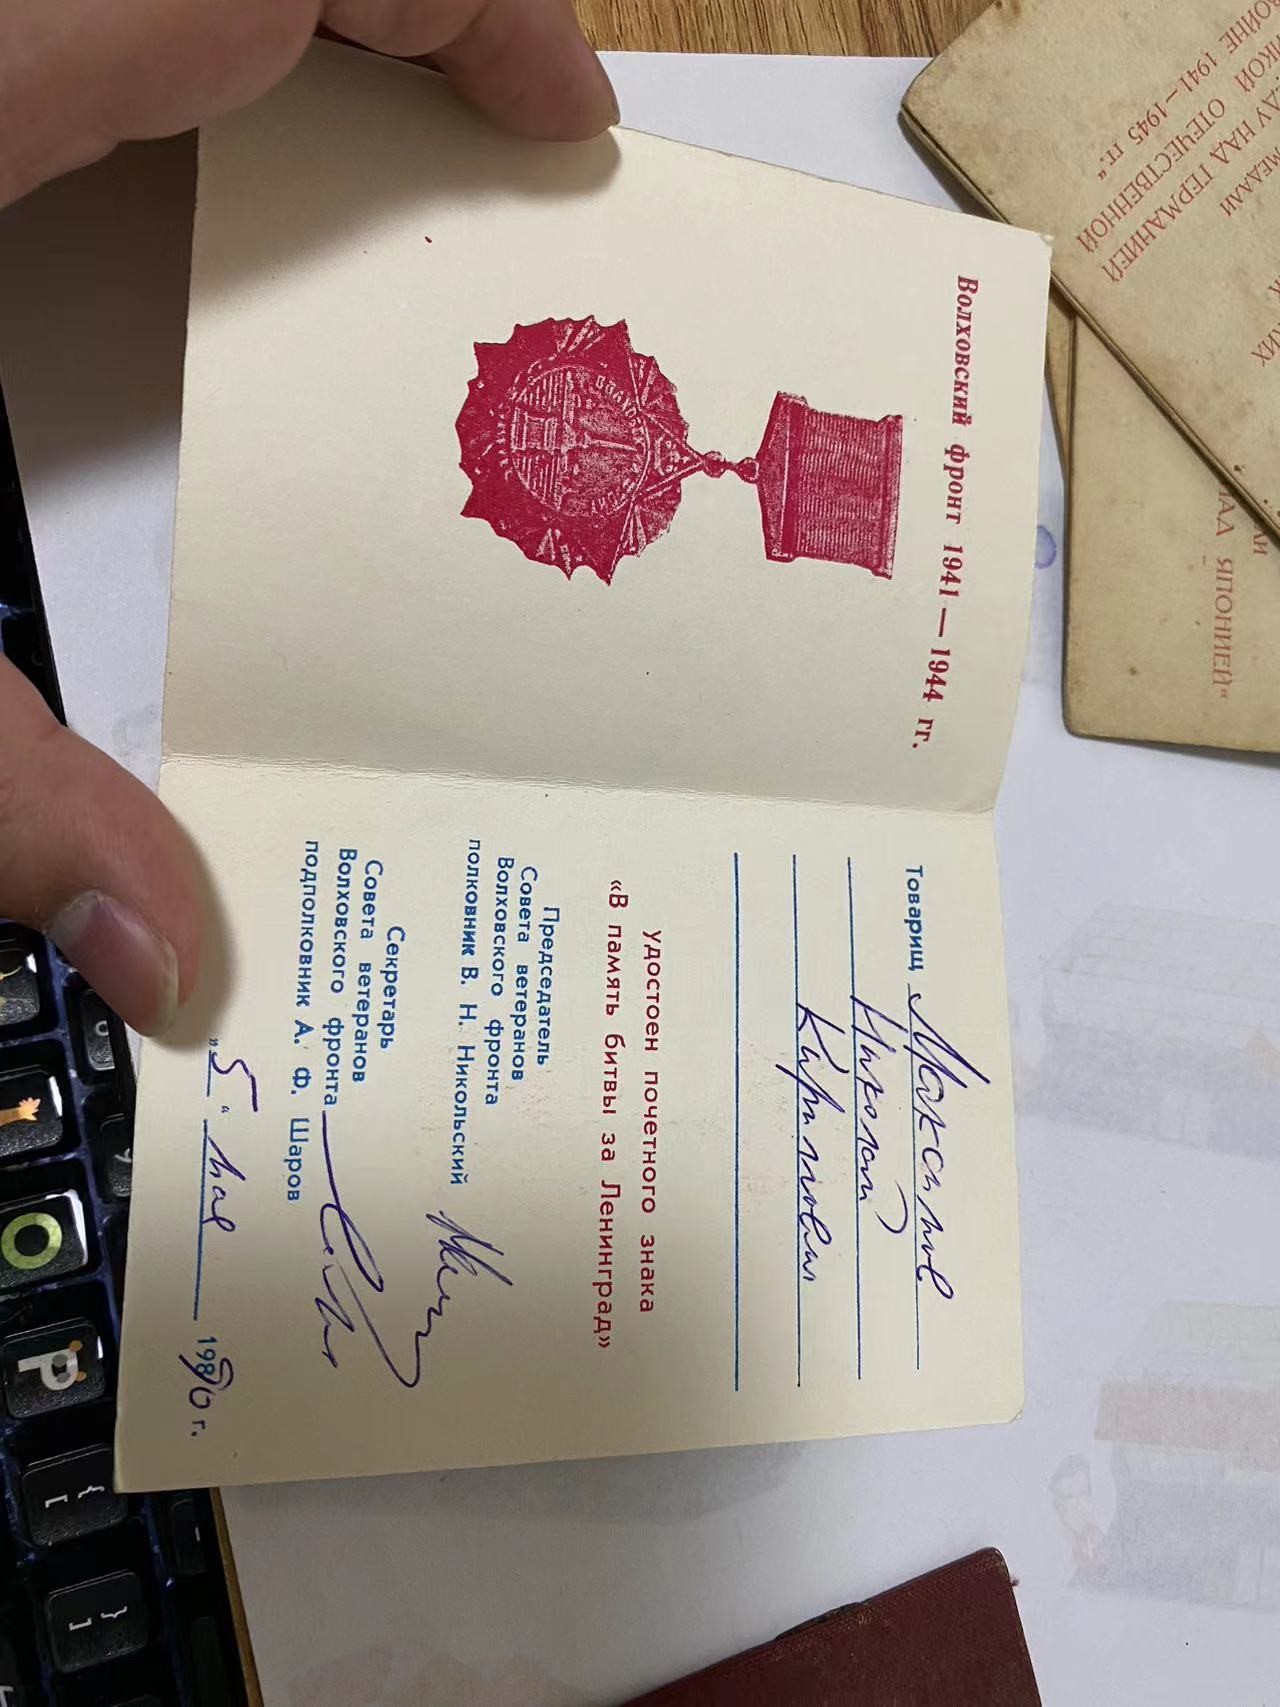 Волховский фронт 1941—1944 гг.
Товарищ Максимов
Николай
Кириллович
удостоен почетного знака
«В память битвы за Ленинград»
Председатель
Совета ветеранов
Волховского фронта
полковник В. Н. Никольский
Секретарь
Совета ветеранов
Волховского фронта
подполковник А. Ф. Шаров
„5“ мая 1990 г.
МЕДАЛИ
НАД ГЕРМАНИЕЙ
ОТЕЧЕСТВЕННОЙ
ВОЙНЕ 1941—1945 гг.“
НАД ЯПОНИЕЙ“
O
P
{
[
}
]